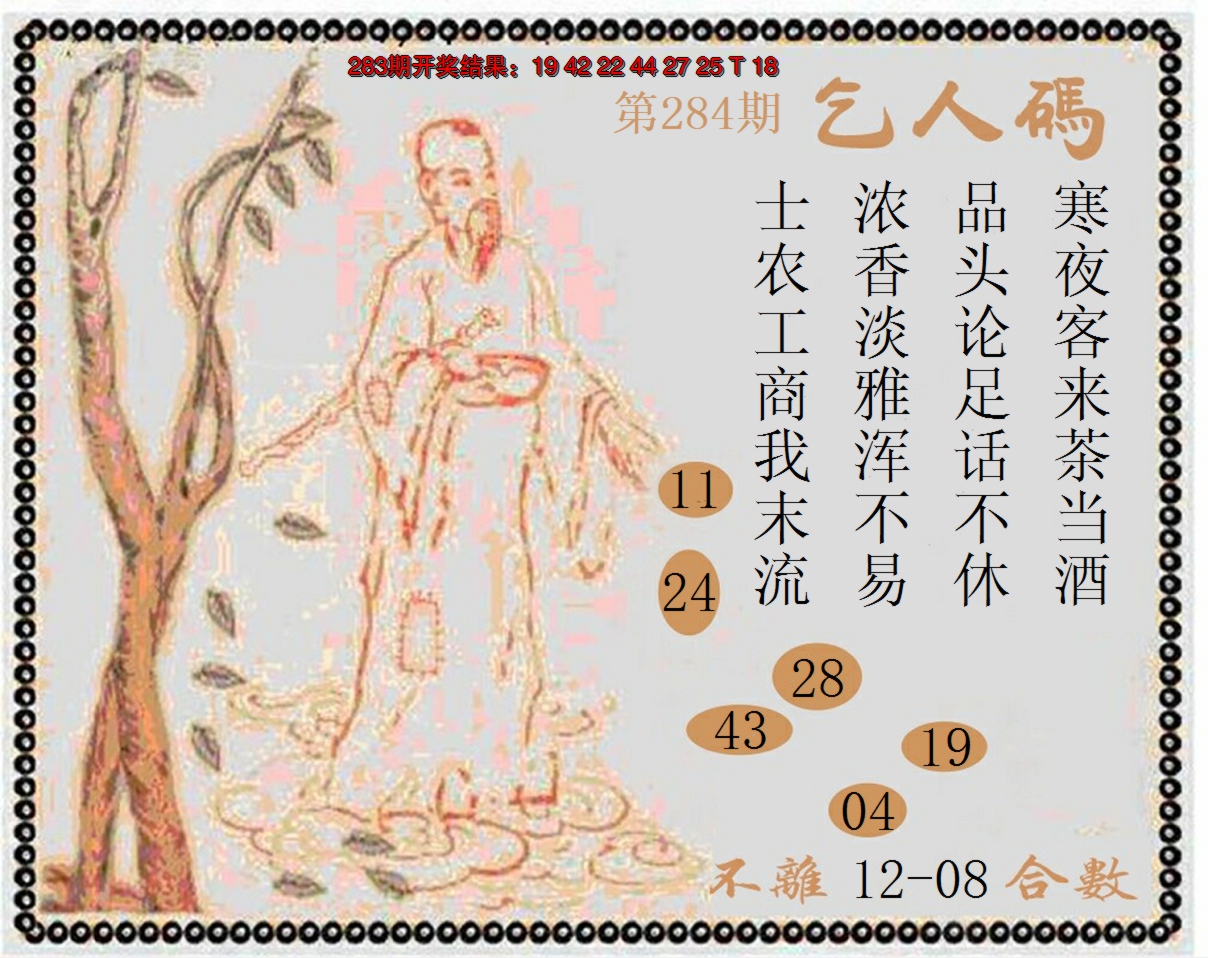 283期开奖结果：19 42 22 44 27 25 T 18
第284期
乞人碼
寒夜客来茶当酒
品头论足话不休
浓香淡雅浑不易
士农工商我末流
11
24
28
43
19
04
不離 12-08 合數